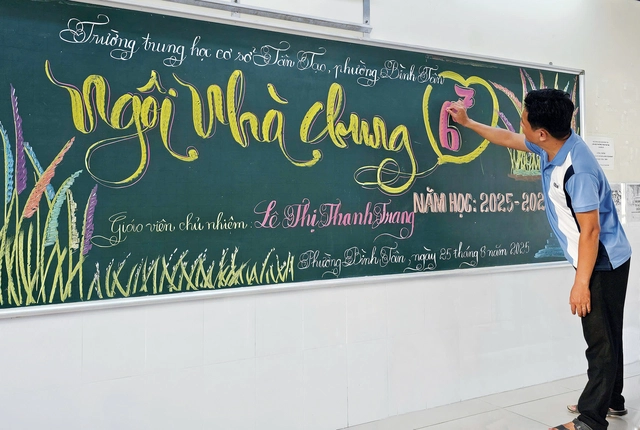 Trường trung học cơ sở Tân Tạo, phường Bình Tân
ngôi nhà chung 6
NĂM HỌC: 2025-202
Giáo viên chủ nhiệm: Lê Thị Thanh Trang
Phường Bình Tân, ngày 25 tháng 8 năm 2025